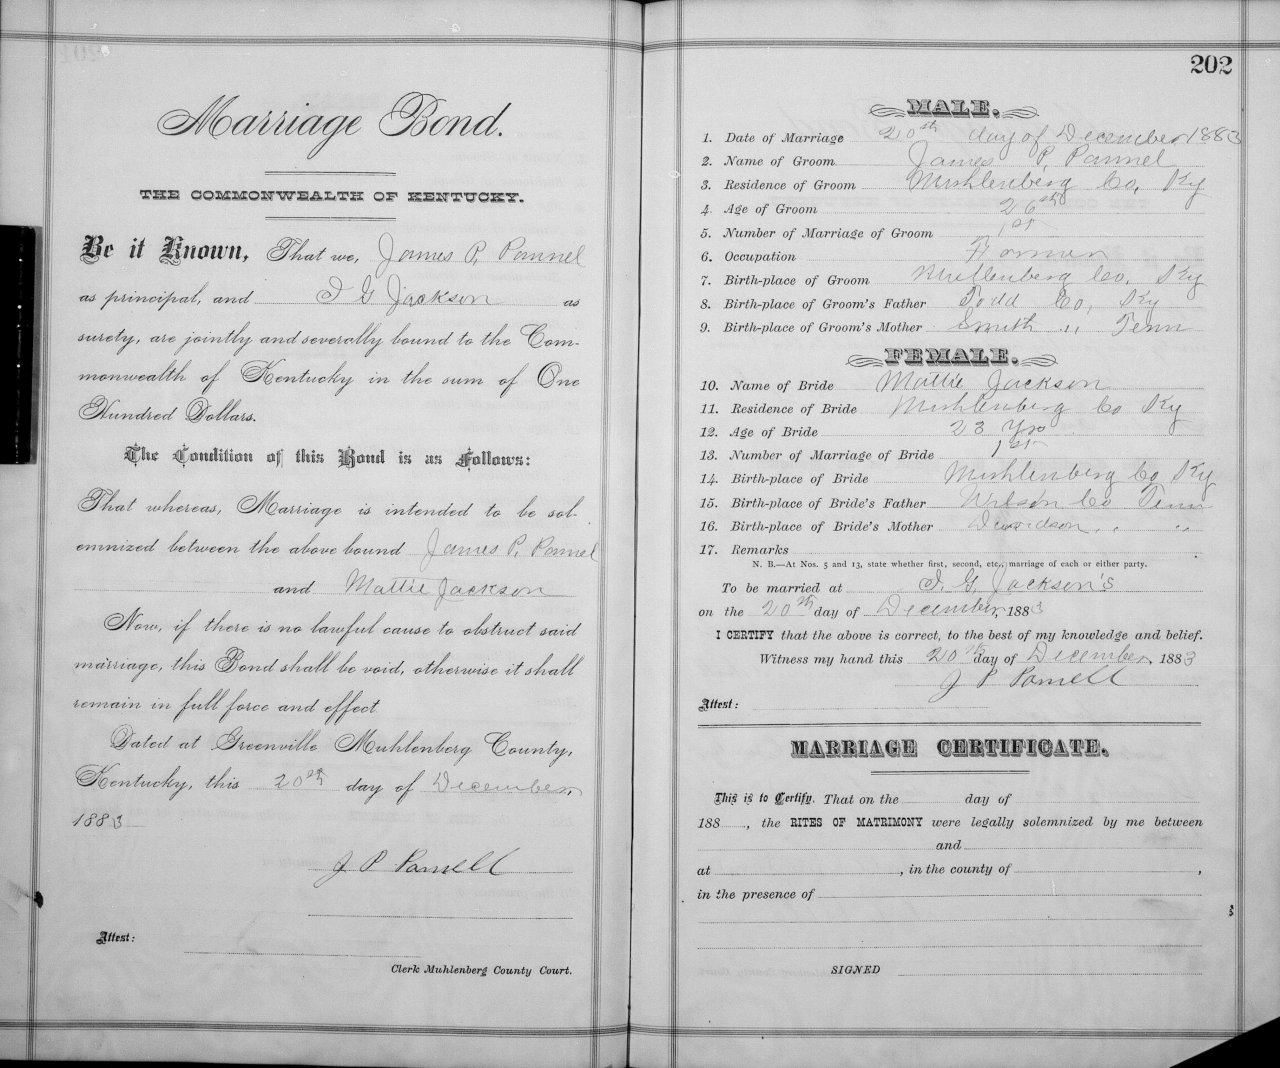 Marriage Bond.
THE COMMONWEALTH OF KENTUCKY.
Be it Known, That we, James P. Pannel
as principal, and I G Jackson as
surety, are jointly and severally bound to the Com-
monwealth of Kentucky in the sum of One
Hundred Dollars.
The Condition of this Bond is as Follows:
That whereas, Marriage is intended to be sol-
emnized between the above bound James P. Pannel
and Mattie Jackson
Now, if there is no lawful cause to obstruct said
marriage, this Bond shall be void, otherwise it shall
remain in full force and effect
Dated at Greenville Muhlenberg County,
Kentucky, this 20th day of December,
1883
J P Pannell
Attest:
Clerk Muhlenberg County Court.
202
MALE.
1. Date of Marriage 20th day of December 1883
2. Name of Groom James P. Pannel
3. Residence of Groom Muhlenberg Co, Ky
4. Age of Groom 26
5. Number of Marriage of Groom 1st
6. Occupation Farmer
7. Birth-place of Groom Muhlenberg Co, Ky
8. Birth-place of Groom's Father Todd Co, Ky
9. Birth-place of Groom's Mother Smith " Tenn
FEMALE.
10. Name of Bride Mattie Jackson
11. Residence of Bride Muhlenberg Co Ky
12. Age of Bride 23 Yrs
13. Number of Marriage of Bride 1st
14. Birth-place of Bride Muhlenberg Co Ky
15. Birth-place of Bride's Father Wilson Co Tenn
16. Birth-place of Bride's Mother Davidson " "
17. Remarks
N. B.—At Nos. 5 and 13, state whether first, second, etc., marriage of each or either party.
To be married at I. G. Jackson's
on the 20th day of December, 1883
I CERTIFY that the above is correct, to the best of my knowledge and belief.
Witness my hand this 20th day of December, 1883
J P Pannell
Attest:
MARRIAGE CERTIFICATE.
This is to Certify, That on the day of
188 , the RITES OF MATRIMONY were legally solemnized by me between
and
at , in the county of ,
in the presence of
SIGNED